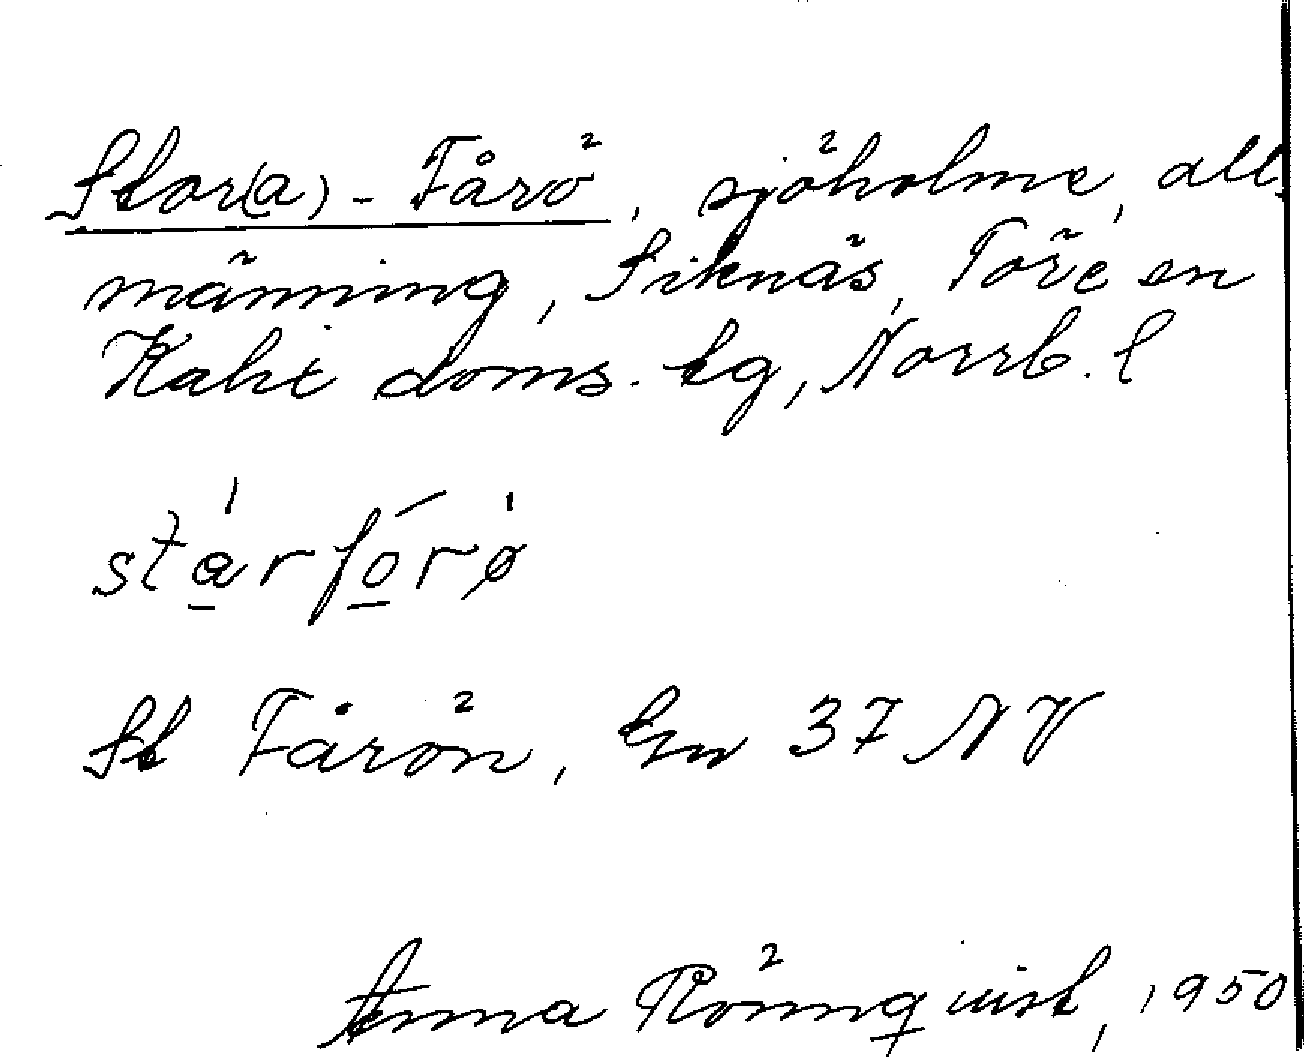 Stor(a)-Fårö, sjöholme, all-
männing, Siknäs, Töre sn
Kalix doms. tg, Norrb. l
starforø
St Fårön, Gn 37 NV
Anna Rönnqvist, 1950